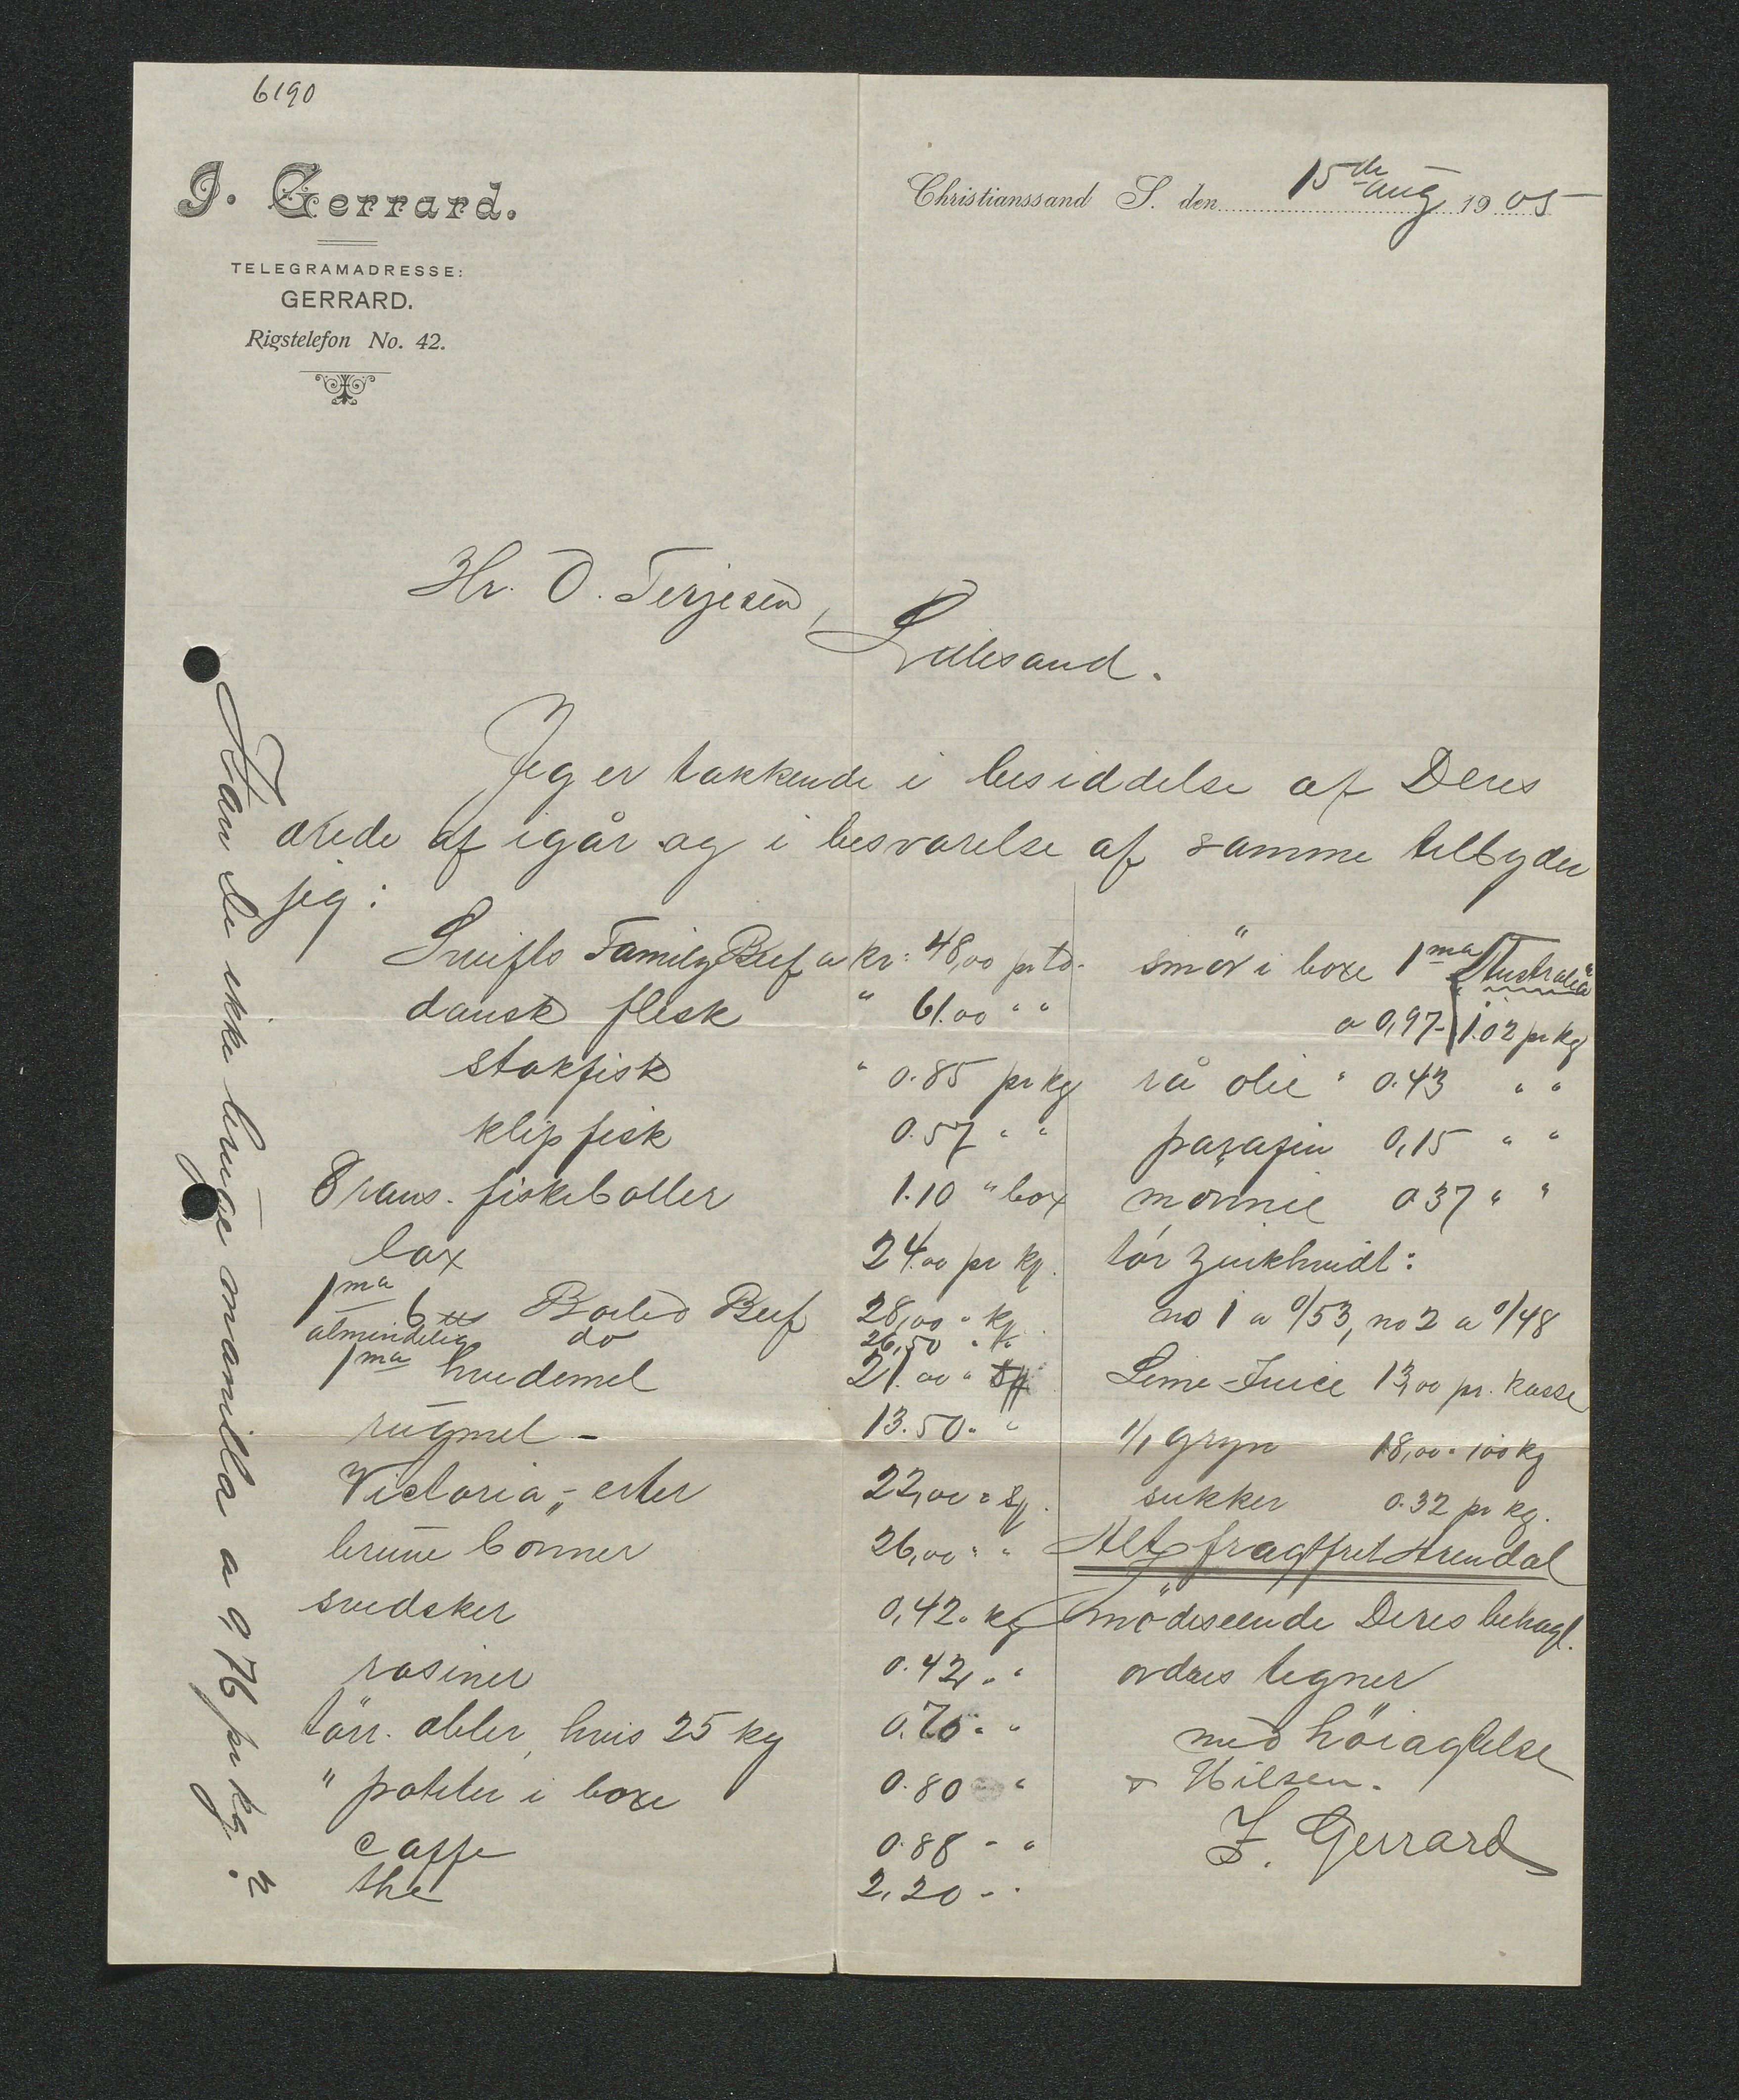 6190
J. Gerrard.
TELEGRAMADRESSE:
GERRARD.
Rigstelefon No. 42.
Christianssand S. den 15de aug 1905
Hr. O. Terjesen,
Lillesand.
Jeg er takkende i besiddelse af Deres
ærede af igår og i besvarelse af samme tilbyder
jeg:
Swifts Family Beef a kr: 48,00 pr td.
dansk flesk " 61.00 " "
stokfisk " 0.85 pr kg
klipfisk 0.57 " "
fiskeboller 1.10 " box
lax 24.00 pr
1ma 6 Boiled Beef 28,00 "
almindelig do 26,50 "
1ma hvedemel 21.00 "
rugmel - 13.50 " "
Victoria-erter 22,00 "
brune bönner 26,00 " "
svedsker 0,42 " kg
rosiner 0.42 " "
törr. æbler, hvis 25 kg 0.70 " "
" poteter i boxe 0.80 "
caffe 0.88 " "
the 2,20 " "
smör i boxe 1ma Australia
a 0,97 - 1.02 pr kg
rå olie " 0.43 " "
parafin 0,15 " "
mönnie 0.37 " "
tör zinkhvidt:
no 1 a 0/53, no 2 a 0/48
Lime-Juice 13,00 pr. kasse
1/1 gryn 18,00 " 100 kg
sukker 0.32 pr kg.
Alt fragtfrit Arendal
Imödeseende Deres behagl.
ordres tegner
med höiagtelse
& Hilsen.
J. Gerrard
Kan De ikke bruge manilla a 0,976 pr kg.?